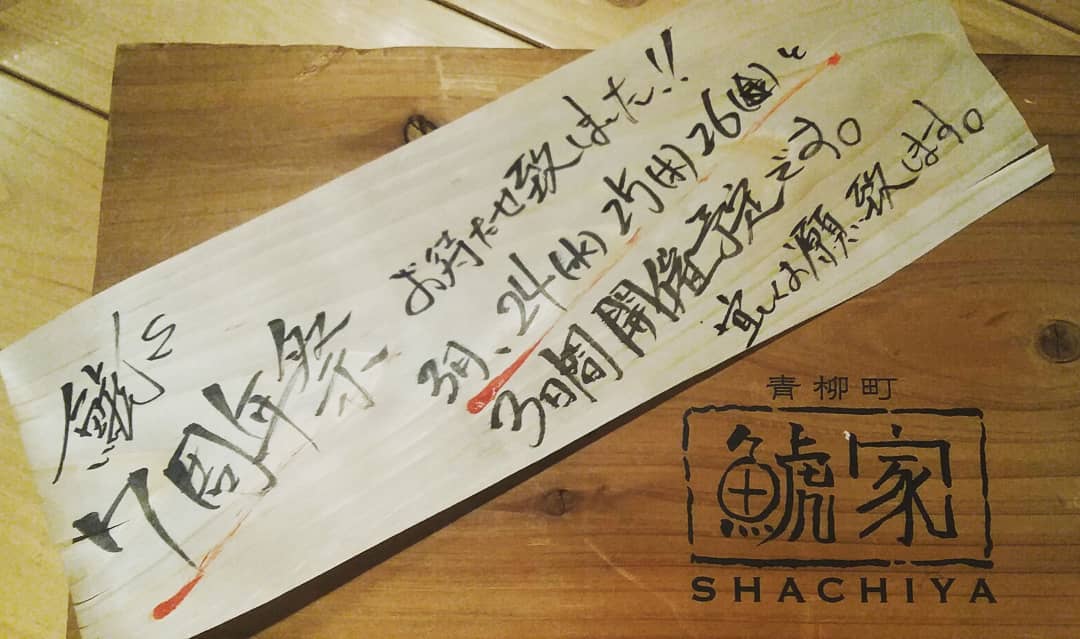 7周年祭、
お待たせ致しました!!
3月、24(水)25(木)26(金)と
3日間開催予定です。
宜しくお願い致します。
青柳町
鯱家
SHACHIYA